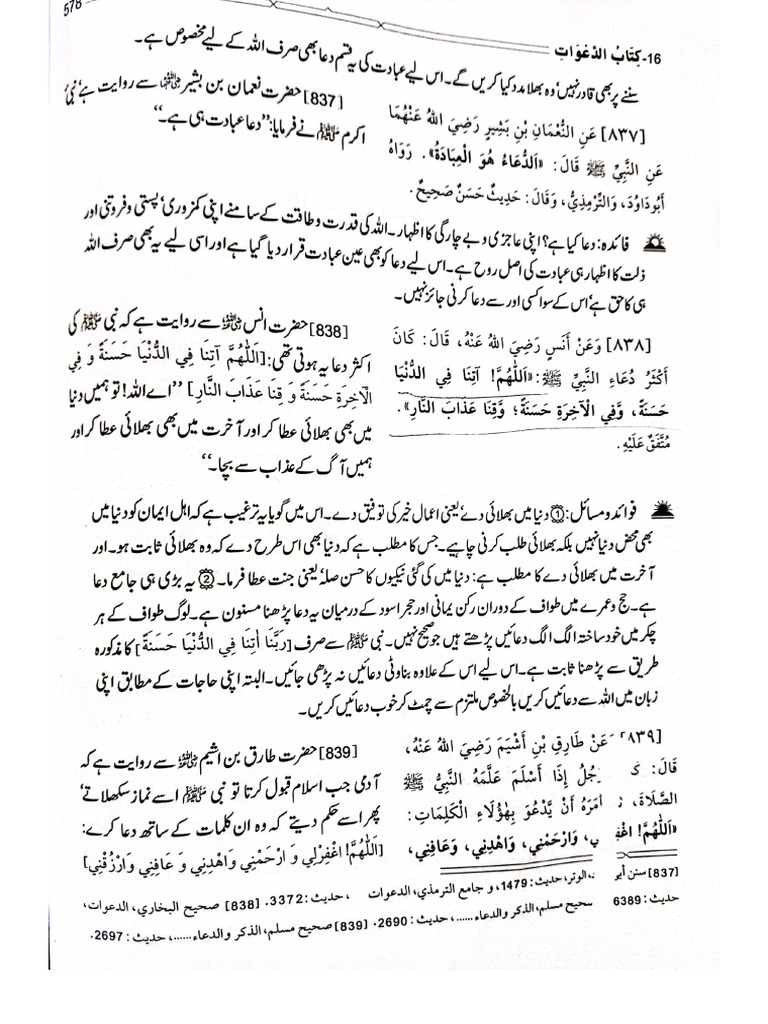 578
16- كِتَابُ الدَّعَوَاتِ
سننے پر بھی قادر نہیں' وہ بھلا مدد کیا کریں گے۔ اس لیے عبادت کی یہ قسم دعا بھی صرف اللہ کے لیے مخصوص ہے۔
[٨٣٧] عَنِ النُّعْمَانِ بْنِ بَشِيرٍ رَضِيَ اللهُ عَنْهُمَا
عَنِ النَّبِيِّ ﷺ قَالَ: «اَلدُّعَاءُ هُوَ الْعِبَادَةُ». رَوَاهُ
أَبُودَاوُدَ، وَالتِّرْمِذِيُّ، وَقَالَ: حَدِيثٌ حَسَنٌ صَحِيحٌ.
[837] حضرت نعمان بن بشیر رضی اللہ عنہما سے روایت ہے' نبیٔ
اکرم ﷺ نے فرمایا: ''دعا عبادت ہی ہے۔''
فائدہ: دعا کیا ہے؟ اپنی عاجزی و بے چارگی کا اظہار۔ اللہ کی قدرت و طاقت کے سامنے اپنی کمزوری' پستی و فروتنی اور
ذلت کا اظہار ہی عبادت کی اصل روح ہے۔ اس لیے دعا کو بھی عین عبادت قرار دیا گیا ہے اور اسی لیے یہ بھی صرف اللہ
ہی کا حق ہے' اس کے سوا کسی اور سے دعا کرنی جائز نہیں۔
[٨٣٨] وَعَنْ أَنَسٍ رَضِيَ اللهُ عَنْهُ، قَالَ: كَانَ
أَكْثَرُ دُعَاءِ النَّبِيِّ ﷺ: «اَللّٰهُمَّ! آتِنَا فِي الدُّنْيَا
حَسَنَةً، وَّفِي الْآخِرَةِ حَسَنَةً؛ وَّقِنَا عَذَابَ النَّارِ».
مُتَّفَقٌ عَلَيْهِ.
[838] حضرت انس رضی اللہ عنہ سے روایت ہے کہ نبی ﷺ کی
اکثر دعا یہ ہوتی تھی: [اَللّٰهُمَّ آتِنَا فِي الدُّنْيَا حَسَنَةً وَ فِي
الْآخِرَةِ حَسَنَةً وَ قِنَا عَذَابَ النَّارِ] ''اے اللہ! تو ہمیں دنیا
میں بھی بھلائی عطا کر اور آخرت میں بھی بھلائی عطا کر اور
ہمیں آگ کے عذاب سے بچا۔''
فوائد و مسائل: ① دنیا میں بھلائی دے' یعنی اعمال خیر کی توفیق دے۔ اس میں گویا یہ ترغیب ہے کہ اہل ایمان کو دنیا میں
بھی محض دنیا نہیں بلکہ بھلائی طلب کرنی چاہیے۔ جس کا مطلب ہے کہ دنیا بھی اس طرح دے کہ وہ بھلائی ثابت ہو۔ اور
آخرت میں بھلائی دے کا مطلب ہے: دنیا میں کی گئی نیکیوں کا حسن صلہ' یعنی جنت عطا فرما۔ ② یہ بڑی ہی جامع دعا
ہے۔ حج و عمرے میں طواف کے دوران رکن یمانی اور حجر اسود کے درمیان یہ دعا پڑھنا مسنون ہے۔ لوگ طواف کے ہر
چکر میں خود ساختہ الگ الگ دعائیں پڑھتے ہیں جو صحیح نہیں۔ نبی ﷺ سے صرف [رَبَّنَا اٰتِنَا فِي الدُّنْيَا حَسَنَةً] کا مذکورہ
طریق سے پڑھنا ثابت ہے۔ اس لیے اس کے علاوہ بناوٹی دعائیں نہ پڑھی جائیں۔ البتہ اپنی حاجات کے مطابق اپنی
زبان میں اللہ سے دعائیں کریں بالخصوص ملتزم سے چمٹ کر خوب دعائیں کریں۔
٨٣٩] عَنْ طَارِقِ بْنِ أَشْيَمَ رَضِيَ اللهُ عَنْهُ،
قَالَ: كَ جُلُ إِذَا أَسْلَمَ عَلَّمَهُ النَّبِيُّ ﷺ
الصَّلَاةَ، امَرَهُ أَنْ يَّدْعُوَ بِهٰؤُلَاءِ الْكَلِمَاتِ:
«اَللّٰهُمَّ! اغْفِرْ ي، وَارْحَمْنِي، وَاهْدِنِي، وَعَافِنِي،
[839] حضرت طارق بن اشیم رضی اللہ عنہ سے روایت ہے کہ
آدمی جب اسلام قبول کرتا تو نبی ﷺ اسے نماز سکھلاتے'
پھر اسے حکم دیتے کہ وہ ان کلمات کے ساتھ دعا کرے:
[اَللّٰهُمَّ! اغْفِرْلِي وَ ارْحَمْنِي وَاهْدِنِي وَ عَافِنِي وَارْزُقْنِي]
[837] سنن أبي ، الوتر، حديث: 1479، و جامع الترمذي، الدعوات ، حديث: 3372. [838] صحيح البخاري، الدعوات،
حديث: 6389 صحيح مسلم، الذكر والدعاء......، حديث: 2690. [839] صحيح مسلم، الذكر والدعاء......، حديث: 2697.